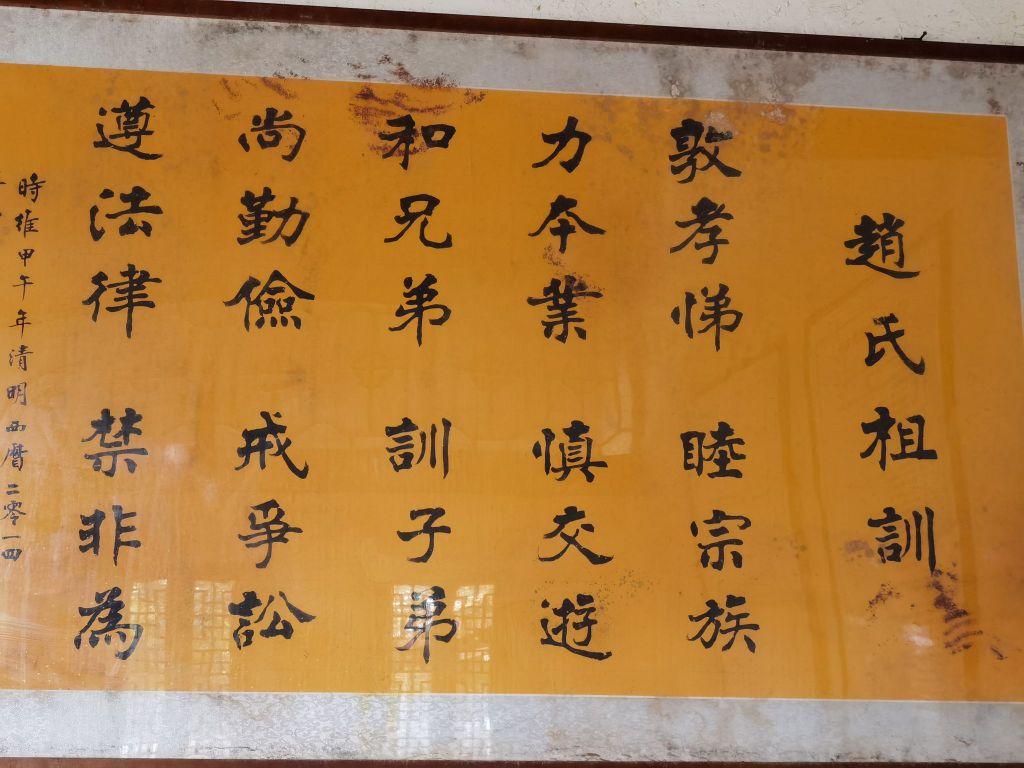 趙氏祖訓
敦孝悌 睦宗族
力本業 慎交遊
和兄弟 訓子弟
尚勤儉 戒爭訟
遵法律 禁非為
時維甲午年清明西曆二零一四